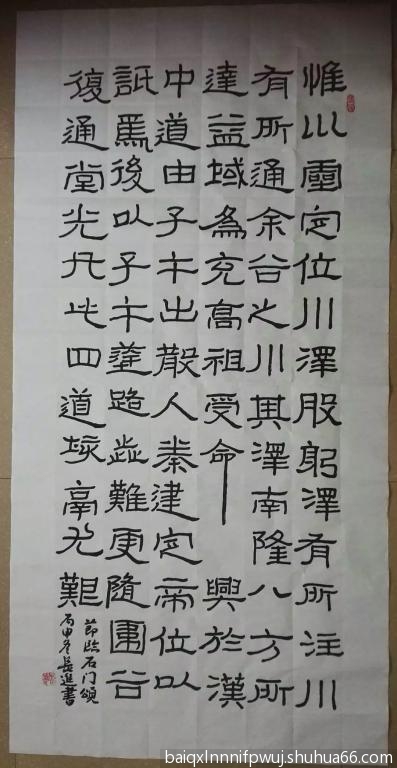 惟巛靈定位川澤股躬澤有所注川
有所通余谷之川其澤南隆八方所
達益域為充高祖受命興於漢
中道由子午出散入秦建定帝位以
詆焉後以子午塗路歰難更隨圍谷
復通堂光凡此四道垓鬲尤艱
節臨石门頌
丙申冬長進書
baiqxlnnnifpwuj.shuhua66.com